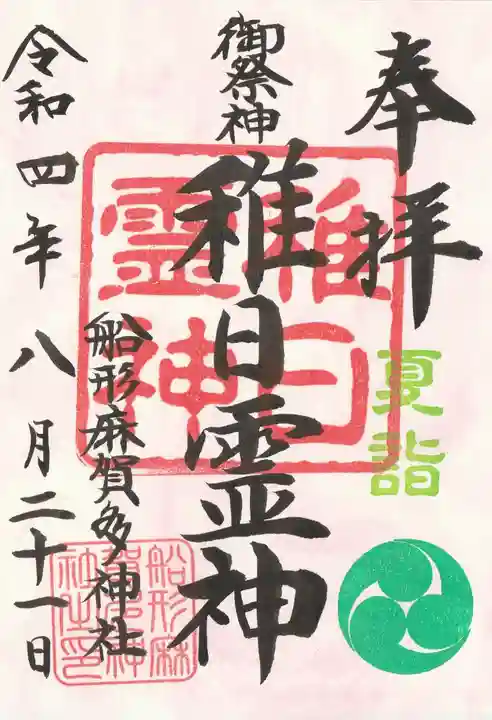 奉拝
夏詣
御祭神
稚日霊神
稚日
霊神
船形麻賀多神社
船形麻
賀多神
社之印
令和四年八月二十一日